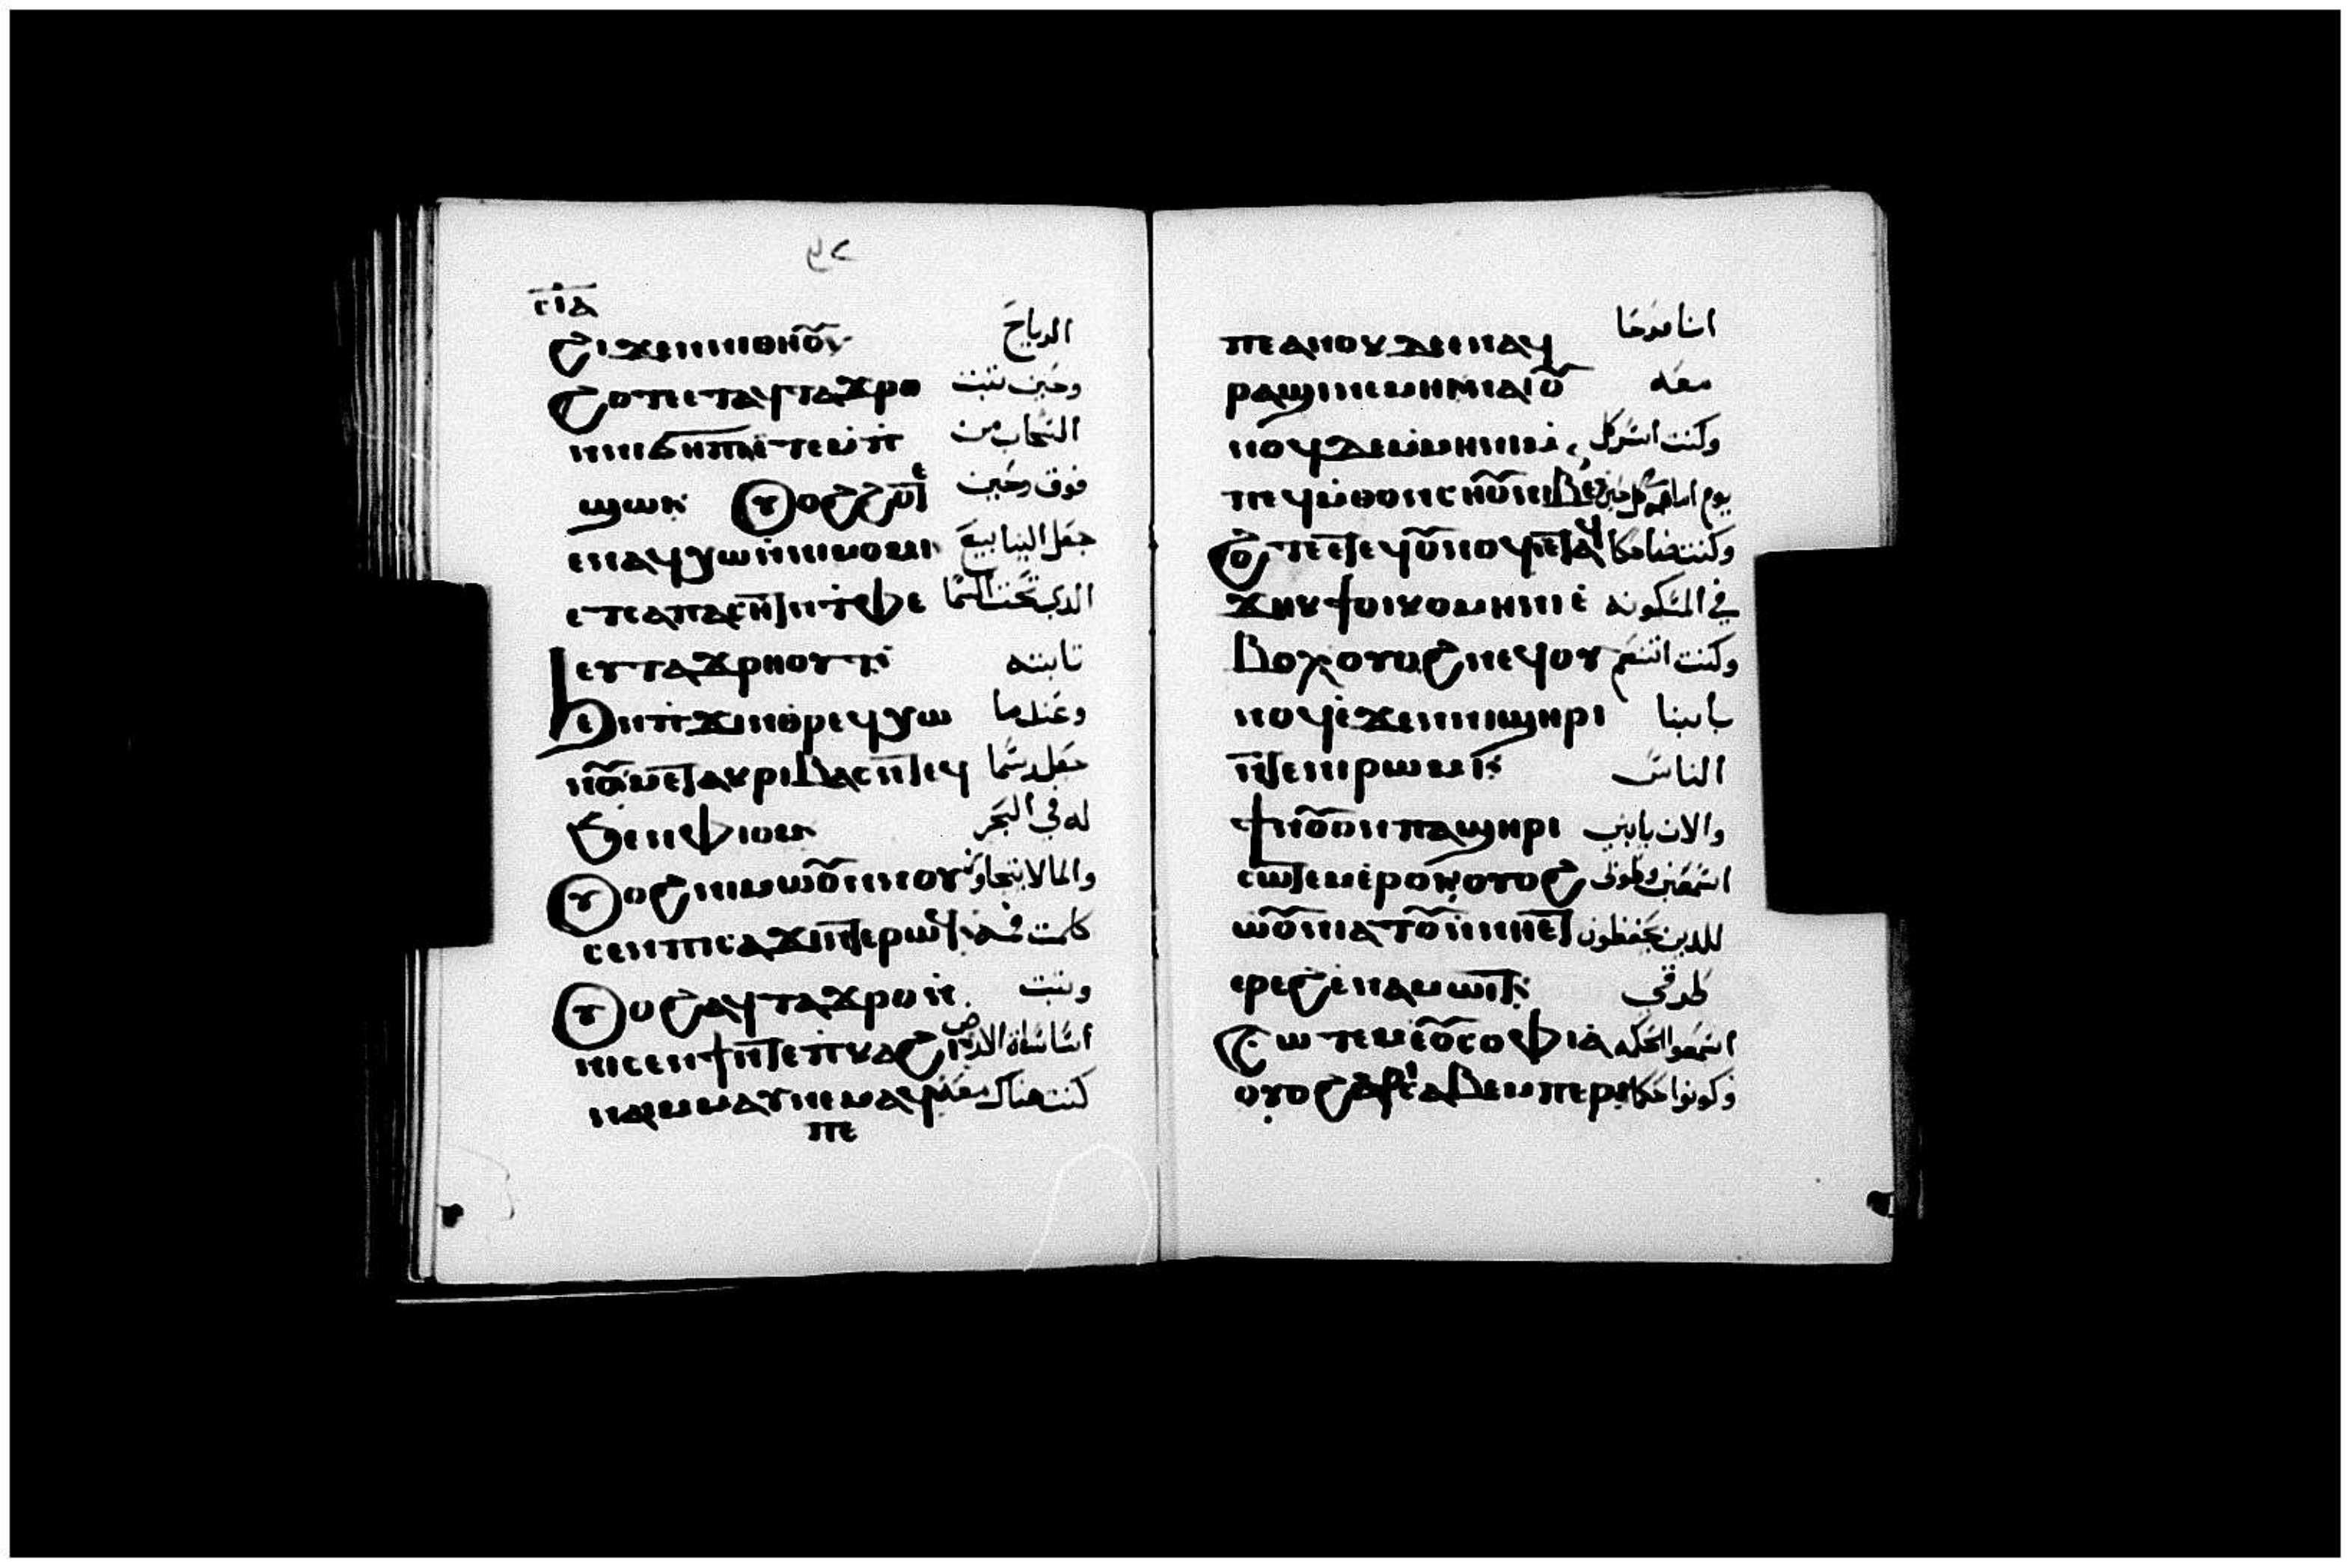 ⲥⲓⲁ
ϩⲓϫⲉⲛⲛⲓⲑⲏⲟⲩ الرياح
ϩⲟⲧⲉⲉⲧⲁϥⲧⲁϫⲣⲟ وحين ثبت
ⲛⲛⲓϭⲏⲡⲓ السحاب من
ϣⲱⲓ ⲟⲩⲟϩ فوق وحين
ⲉⲛⲁϥⲭⲱⲛⲛⲓⲙⲟⲩⲙⲓ جعل الينابيع
ⲉⲧⲥⲁⲡⲉⲥⲏⲧⲛⲧⲫⲉ الدي تحت السما
ⲉⲩⲧⲁϫⲣⲏⲟⲩⲧ ثابته
ϧⲉⲛⲡϫⲓⲛⲑⲣⲉϥⲭⲱ وعندما
جعل رسما
ϧⲉⲛⲫⲓⲟⲙ له في البحر
ⲟⲩⲟϩⲛⲓⲙⲱⲟⲩⲛⲛⲟⲩ والما لا يتجاوز
ⲥⲉⲛⲡⲓⲥⲁϫⲓⲛⲧⲉⲣⲱϥ كلمت فمه
ⲟⲩⲟϩⲁϥⲧⲁϫⲣⲟⲛ وثبت
ⲛⲓⲥⲉⲛϯⲛⲧⲉⲡⲕⲁϩⲓ اساسات الارض
ⲛⲁⲓⲙⲙⲁⲩⲛⲉⲙⲁϥ كنت هناك معه
ⲡⲉ
ⲡⲉⲁⲛⲟⲕⲇⲉⲛⲁϥ انا فرحا
ⲣⲁϣⲓⲛⲉⲙⲏⲓ معه
وكنت اسر كل
ⲡⲉϥⲙⲑⲟⲛⲥⲏⲟⲩⲛⲓⲃⲉⲛ يوم امامه كل حين
ϩⲟⲧⲉ وكنت ضاحكا
ϫⲏⲕϯⲟⲓⲕⲟⲩⲙⲉⲛⲏ في المسكونه
ⲃⲟⲗⲟⲩⲟϩⲛⲉϥⲟⲩ وكنت اتنعم
ⲛⲟϥⲉϫⲉⲛⲛⲓϣⲏⲣⲓ بابنا
ⲛⲧⲉⲛⲓⲣⲱⲙⲓ الناس
ϯⲛⲟⲩⲟⲛⲡⲁϣⲏⲣⲓ والان يا بني
ⲥⲱⲧⲉⲙⲉⲣⲟⲓⲟⲩⲟϩ اسمعني وطوبى
ⲱⲟⲩⲛⲓⲁⲧⲟⲩⲛⲛⲏⲉⲧ للدين يحفظون
ⲉⲣⲉϩⲉⲛⲁⲙⲱⲓⲧ طرقي
ⲥⲱⲧⲉⲙⲉⲟⲩⲥⲟⲫⲓⲁ اسمعوا الحكمه
ⲟⲩⲟϩⲁⲣⲓⲥⲁⲃⲉⲙⲡⲉⲣ وكونوا حكما